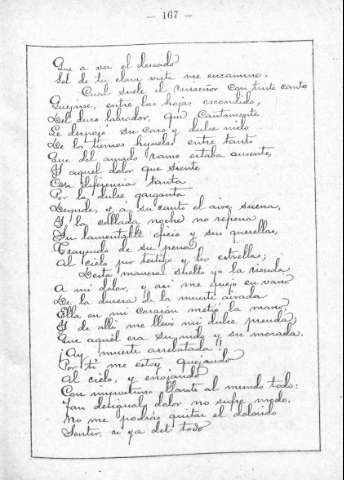 — 167 —
Que a ver el deseado
Sol de tu clara vista me encamine.
Cual suele el ruiseñor con triste canto
Quejarse, entre las hojas escondido,
Del duro labrador, que cautamente
Le despojó su caro y dulce nido
De los tiernos hijuelos entre tanto
Que del amado ramo estaba ausente,
Y aquel dolor que siente
Con diferencia tanta
Por la dulce garganta
Despide, y a su canto el aire suena,
Y la callada noche no refrena
Su lamentable oficio y sus querellas,
Trayendo de su pena
Al cielo por testigo y las estrellas;
Desta manera suelto yo la rienda
A mi dolor, y así me quejo en vano
De la dureza de la muerte airada.
Ella en mi corazón metió la mano
Y de allí me llevó mi dulce prenda;
Que aquél era su nido y su morada.
¡Ay muerte arrebatada!
Por ti me estoy quejando
Al cielo, y enojando
Con importuno llanto al mundo todo:
Tan desigual dolor no sufre modo.
No me podrán quitar el dolorido
Sentir, si ya del todo